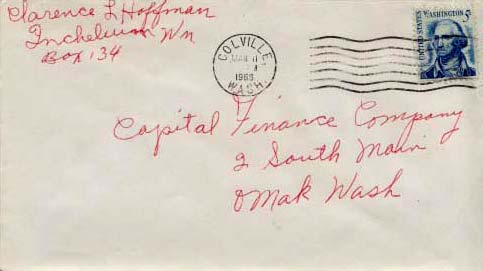 Clarence L Hoffman
Inchelium Wn
Box 134
COLVILLE
WASH.
UNITED STATES
WASHINGTON 5c
Capital Finance Company
2 South Main
OMak Wash